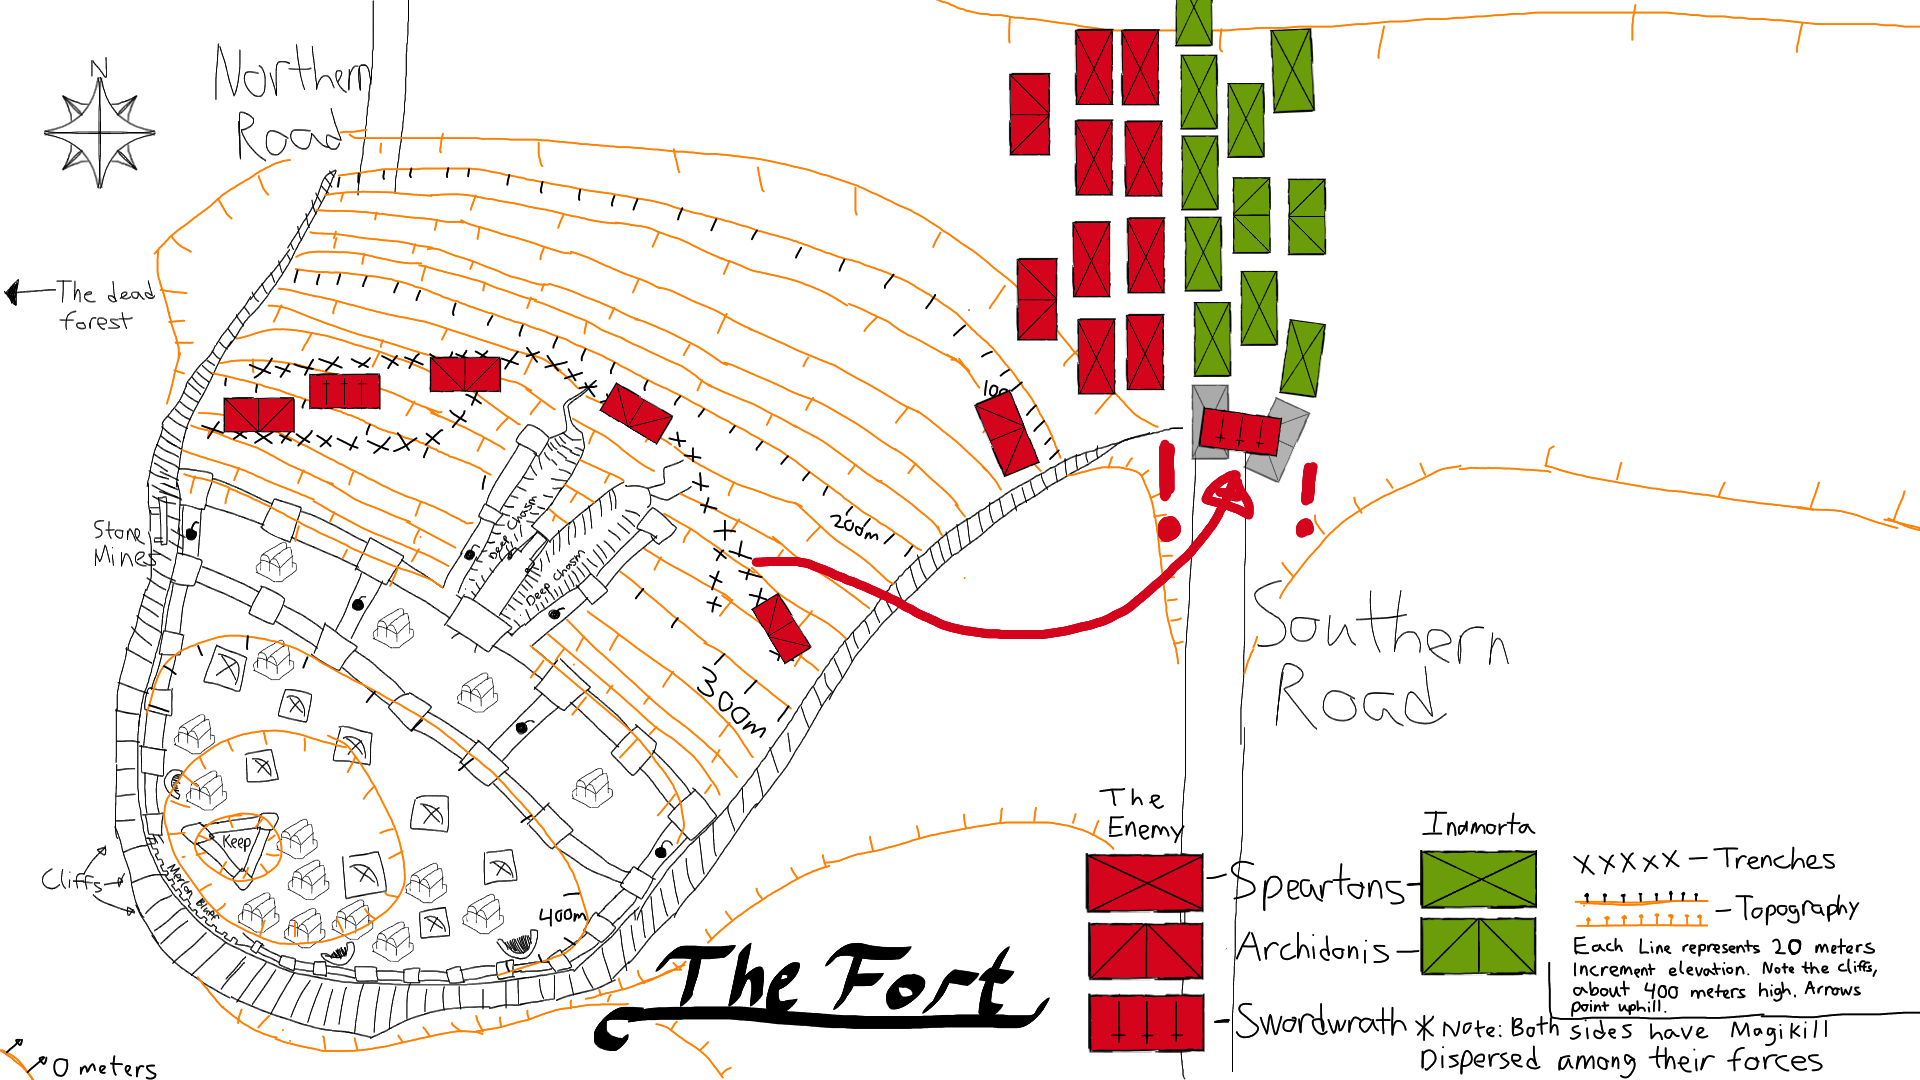 N
Northern
Road
The dead
forest
100
200m
Stone
Mines
Deep Chasm
Deep Chasm
300m
Southern
Road
Keep
Merlon Bluff
Cliffs
400m
The Fort
0 meters
The
Enemy
Inamorta
Speartons
Archidonis
Swordwrath
xxxxx - Trenches
- Topography
Each Line represents 20 meters
Increment elevation. Note the cliffs,
about 400 meters high. Arrows
point uphill.
* Note: Both sides have Magikill
Dispersed among their forces
! !